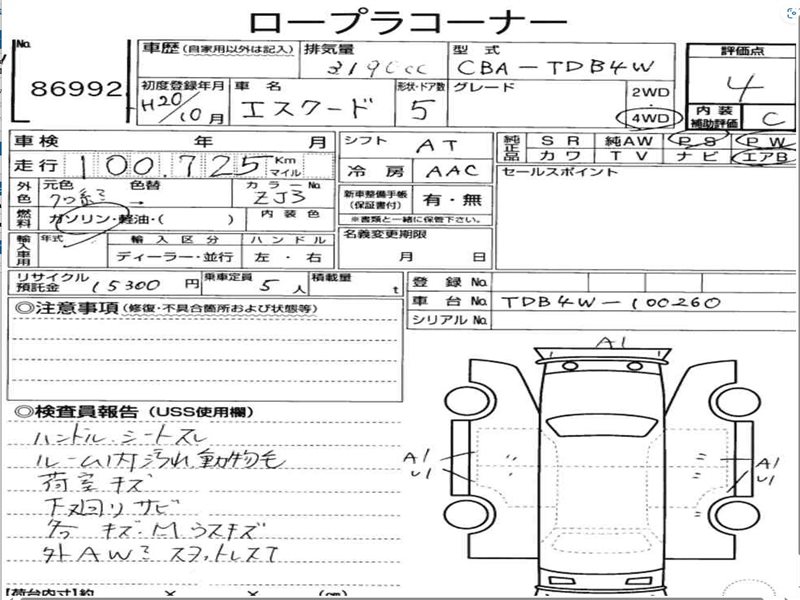 ロープラコーナー
No. 86992
車歴(自家用以外は記入) 排気量 3196cc 型式 CBA-TDB4W 評価点 4
初度登録年月 H20/10月 車名 エスクード 形状・ドア数 5 グレード 2WD 4WD 内装補助評価 C
車検 年 月 シフト AT 純正品 SR 純AW PS PW
走行 100,725 Km マイル 冷房 AAC カワ TV ナビ エアB
外色 元色 色替 カラーNo. ZJ3 新車整備手帳(保証書付) 有・無 セールスポイント
※書類と一緒に保管下さい。
燃料 ガソリン・軽油・( ) 内装色 名義変更期限 月 日
輸入車用 年式 輸入区分 ディーラー・並行 ハンドル 左・右
リサイクル預託金 15300円 乗車定員 5人 積載量 t 登録No.
車台No. TDB4W-100260
シリアルNo.
◎注意事項(修復・不具合箇所および状態等)
A1
◎検査員報告(USS使用欄)
ハンドル、シートスレ
ルーム内汚れ、動物毛
荷室キズ
下廻りサビ
キズ・
外AW
A1 U1
A1 U1
【荷台内寸】約 × × (cm)